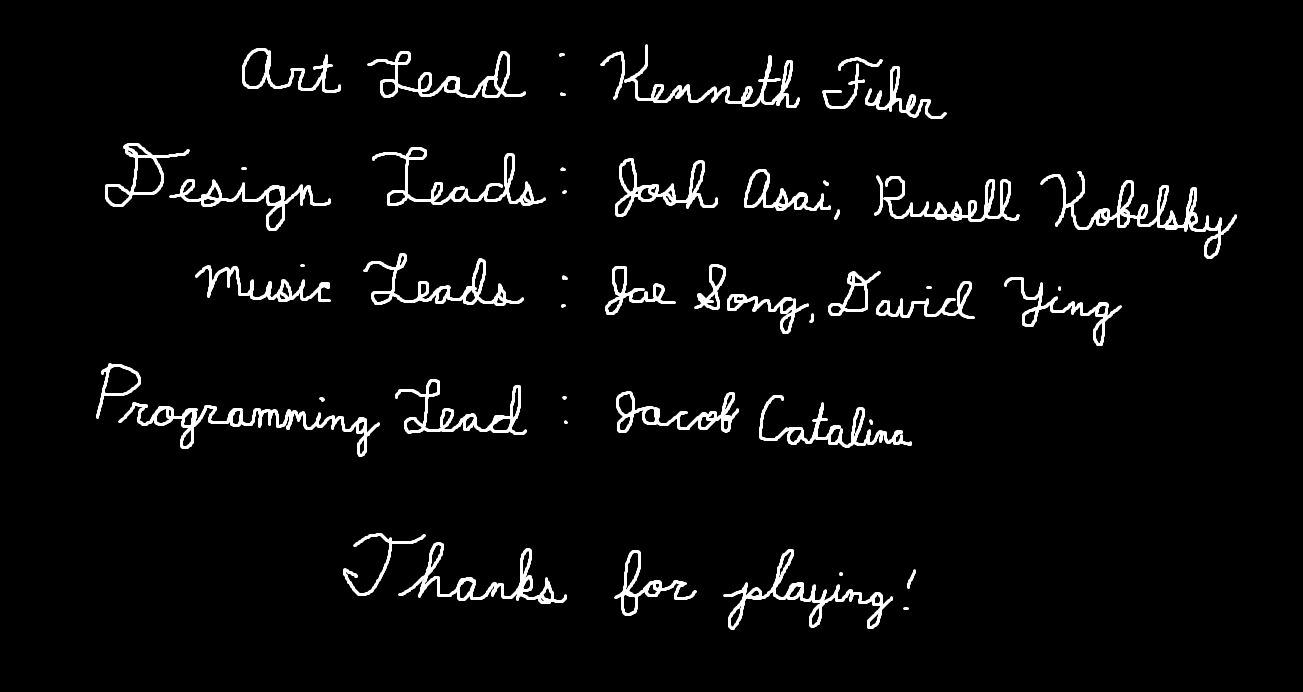 Art Lead : Kenneth Fuher
Design Leads : Josh Asai, Russell Kobelsky
Music Leads : Jae Song, David Ying
Programming Lead : Jacob Catalina
Thanks for playing!